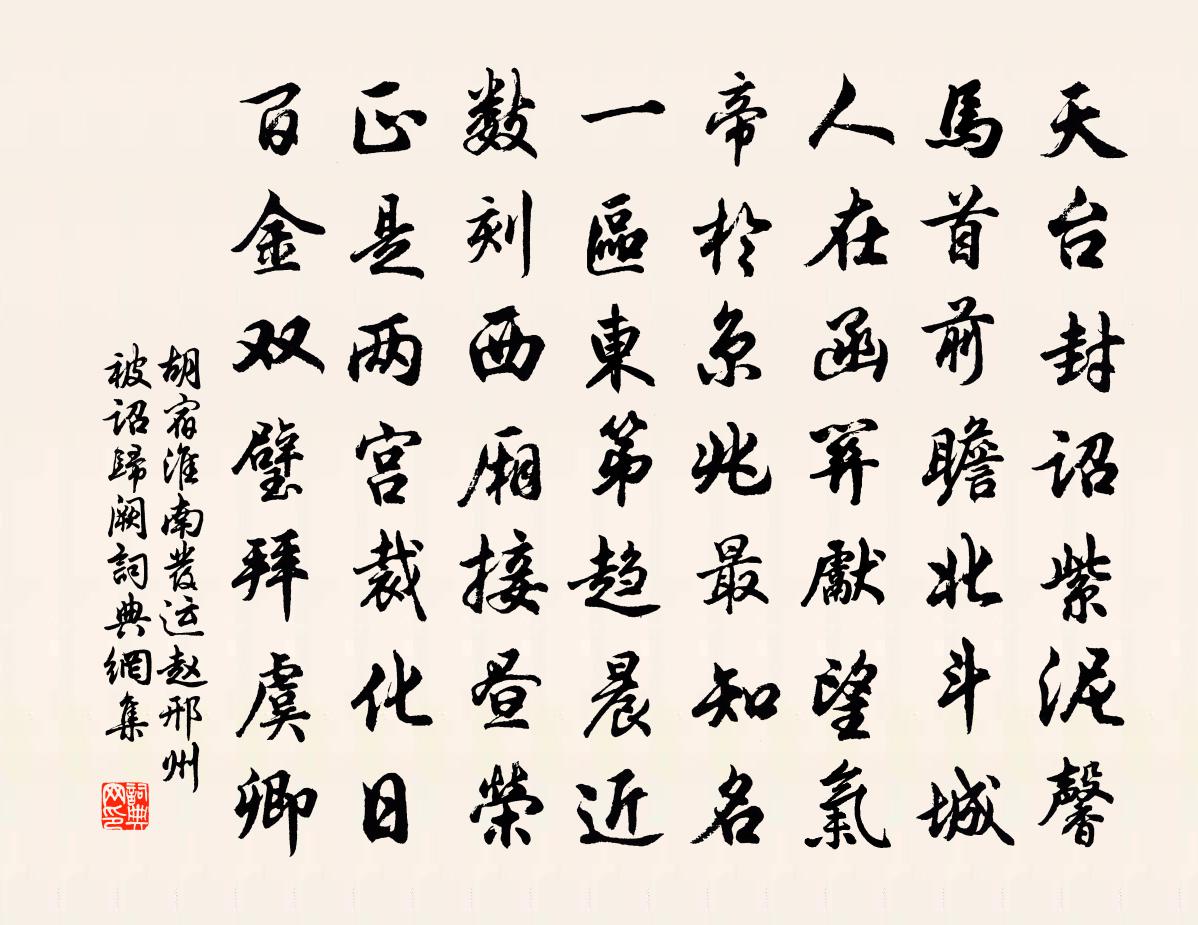 天台封诏紫泥馨
馬首前瞻北斗城
人在函關獻望氣
帝於京兆最知名
一區東第趋晨近
数刻西厢接昼榮
正是两宫裁化日
百金双璧拜虞卿
胡宿淮南發运赵邢州
被诏歸阙詞典網集
詞典网印